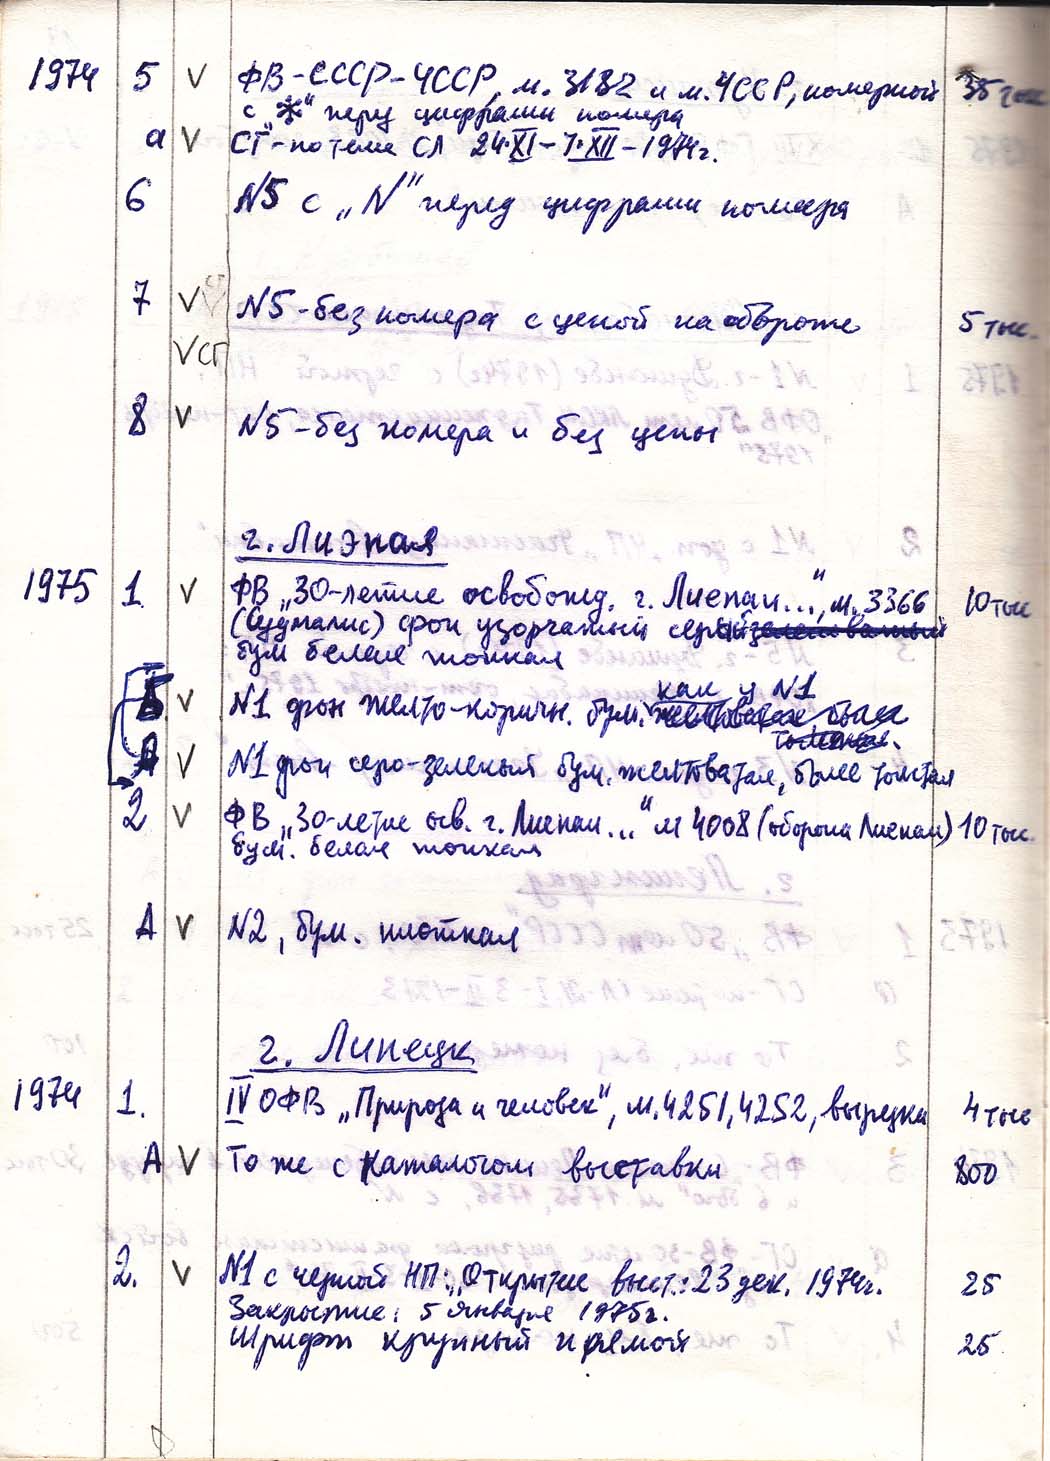 1974 5 V ФВ-СССР-ЧССР, м. 3182 и м. ЧССР, номерной 35 тыс
с „*" перед цифрами номера
а V СГ-по теме СЛ 24·XI-7·XII-1974г.
6 N5 с „N" перед цифрами номера
7 V N5-без номера с ценой на обороте 5 тыс.
V СГ
8 V N5-без номера и без цены
г. Лиэпая
1975 1. V ФВ „30-летие освобожд. г. Лиепаи...", м. 3366 10 тыс
(Судмалис) фон узорчатый серый
бум белая тонкая
как у N1
Б V N1 фон желто-коричн. бум. желтоватая, более
толстая.
А V N1 фон серо-зеленый бум. желтоватая, более толстая
2 V ФВ „30-летие осв. г. Лиепаи..." м 4008 (оборона Лиепаи) 10 тыс.
бум. белая тонкая
А V N2, бум. плотная
г. Липецк
1974 1. IV ОФВ „Природа и человек", м. 4251, 4252, вырезки 4 тыс
А V То же с каталогом выставки 800
2. V N1 с черной НП: „Открытие выст.: 23 дек. 1974г. 25
Закрытие: 5 января 1975г.
Шрифт крупный прямой 25